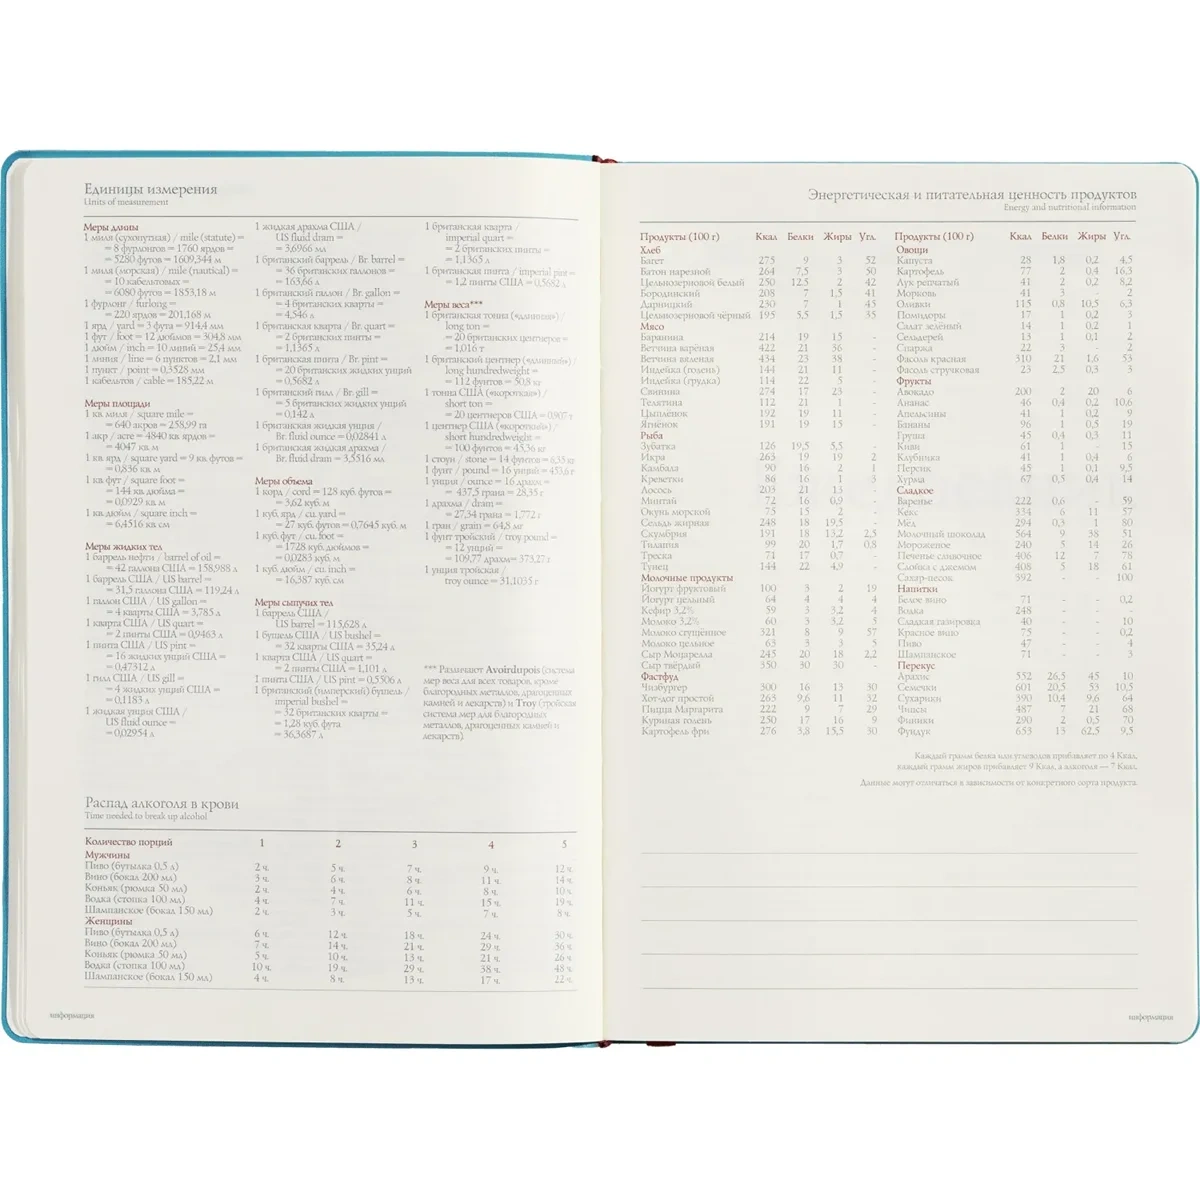 Единицы измерения
Units of measurement
Меры длины
1 миля (сухопутная) / mile (statute) =
= 8 фурлонгов = 1760 ярдов =
= 5280 футов = 1609,344 м
1 миля (морская) / mile (nautical) =
= 10 кабельтовых =
= 6080 футов = 1853,18 м
1 фурлонг / furlong =
= 220 ярдов = 201,168 м
1 ярд / yard = 3 фута = 914,4 мм
1 фут / foot = 12 дюймов = 304,8 мм
1 дюйм / inch = 10 линий = 25,4 мм
1 линия / line = 6 пунктов = 2,1 мм
1 пункт / point = 0,3528 мм
1 кабельтов / cable = 185,22 м
Меры площади
1 кв. миля / square mile =
= 640 акров = 258,99 га
1 акр / acre = 4840 кв. ярдов =
= 4047 кв. м
1 кв. ярд / square yard = 9 кв. футов =
= 0,836 кв. м
1 кв. фут / square foot =
= 144 кв. дюйма =
= 0,0929 кв. м
1 кв. дюйм / square inch =
= 6,4516 кв. см
Меры жидких тел
1 баррель нефти / barrel of oil =
= 42 галлона США = 158,988 л
1 баррель США / US barrel =
= 31,5 галлона США = 119,24 л
1 галлон США / US gallon =
= 4 кварты США = 3,785 л
1 кварта США / US quart =
= 2 пинты США = 0,9463 л
1 пинта США / US pint =
= 16 жидких унций США =
= 0,47312 л
1 гилл США / US gill =
= 4 жидких унций США =
= 0,1183 л
1 жидкая унция США /
US fluid ounce =
= 0,02954 л
1 жидкая драхма США /
US fluid dram =
= 3,6966 мл
1 британский баррель / Br. barrel =
= 36 британских галлонов =
= 163,66 л
1 британский галлон / Br. gallon =
= 4 британских кварты =
= 4,546 л
1 британская кварта / Br. quart =
= 2 британских пинты =
= 1,1365 л
1 британская пинта / Br. pint =
= 20 британских жидких унций
= 0,5682 л
1 британский гилл / Br. gill =
= 5 британских жидких унций
= 0,142 л
1 британская жидкая унция /
Br. fluid ounce = 0,02841 л
1 британская жидкая драхма /
Br. fluid dram = 3,5516 мл
Меры объема
1 корд / cord = 128 куб. футов =
= 3,62 куб. м
1 куб. ярд / cu. yard =
= 27 куб. футов = 0,7645 куб. м
1 куб. фут / cu. foot =
= 1728 куб. дюймов =
= 0,0283 куб. м
1 куб. дюйм / cu. inch =
= 16,387 куб. см
Меры сыпучих тел
1 баррель США /
US barrel = 115,628 л
1 бушель США / US bushel =
= 32 кварты США = 35,24 л
1 кварта США / US quart =
= 2 пинты США = 1,101 л
1 пинта США / US pint = 0,5506 л
1 британский (имперский) бушель /
imperial bushel =
= 32 британских кварты =
= 1,28 куб. фута
= 36,3687 л
1 британская кварта /
imperial quart =
= 2 британских пинты =
= 1,1365 л
1 британская пинта / imperial pint =
= 1,2 пинты США = 0,5682 л
Меры веса***
1 британская тонна («длинная») /
long ton =
= 20 британских центнеров =
= 1,016 т
1 британский центнер («длинный») /
long hundredweight =
= 112 фунтов = 50,8 кг
1 тонна США («короткая») /
short ton =
= 20 центнеров США = 0,907 т
1 центнер США («короткий») /
short hundredweight =
= 100 фунтов = 45,36 кг
1 стоун / stone = 14 фунтов = 6,35 кг
1 фунт / pound = 16 унций = 453,6 г
1 унция / ounce = 16 драхм =
= 437,5 грана = 28,35 г
1 драхма / dram =
= 27,34 грана = 1,772 г
1 гран / grain = 64,8 мг
1 фунт тройский / troy pound =
= 12 унций =
= 109,77 драхм= 373,27 г
1 унция тройская /
troy ounce = 31,1035 г
*** Различают Avoirdupois (система
мер веса для всех товаров, кроме
благородных металлов, драгоценных
камней и лекарств) и Troy (тройская
система мер для благородных
металлов, драгоценных камней и
лекарств).
Распад алкоголя в крови
Time needed to break up alcohol
Количество порций 1 2 3 4 5
Мужчины
Пиво (бутылка 0,5 л) 2 ч. 5 ч. 7 ч. 9 ч. 12 ч.
Вино (бокал 200 мл) 3 ч. 6 ч. 8 ч. 11 ч. 14 ч.
Коньяк (рюмка 50 мл) 2 ч. 4 ч. 6 ч. 8 ч. 10 ч.
Водка (стопка 100 мл) 4 ч. 7 ч. 11 ч. 15 ч. 19 ч.
Шампанское (бокал 150 мл) 2 ч. 3 ч. 5 ч. 7 ч. 8 ч.
Женщины
Пиво (бутылка 0,5 л) 6 ч. 12 ч. 18 ч. 24 ч. 30 ч.
Вино (бокал 200 мл) 7 ч. 14 ч. 21 ч. 29 ч. 36 ч.
Коньяк (рюмка 50 мл) 5 ч. 10 ч. 13 ч. 21 ч. 26 ч.
Водка (стопка 100 мл) 10 ч. 19 ч. 29 ч. 38 ч. 48 ч.
Шампанское (бокал 150 мл) 4 ч. 8 ч. 13 ч. 17 ч. 22 ч.
информация
Энергетическая и питательная ценность продуктов
Energy and nutritional information
Продукты (100 г) Ккал Белки Жиры Угл.
Хлеб
Багет 275 9 3 52
Батон нарезной 264 7,5 3 50
Цельнозерновой белый 250 12,5 2 42
Бородинский 208 7 1,5 41
Дарницкий 230 7 1 45
Цельнозерновой чёрный 195 5,5 1,5 35
Мясо
Баранина 214 19 15 -
Ветчина варёная 422 21 36 -
Ветчина вяленая 434 23 38 -
Индейка (голень) 144 21 11 -
Индейка (грудка) 114 22 5 -
Свинина 274 17 23 -
Телятина 112 21 1 -
Цыплёнок 192 19 11 -
Ягнёнок 191 19 15 -
Рыба
Зубатка 126 19,5 5,5 -
Икра 263 19 19 2
Камбала 90 16 2 1
Креветки 86 16 1 3
Лосось 203 21 13 -
Минтай 72 16 0,9 -
Окунь морской 75 15 2 -
Сельдь жирная 248 18 19,5 -
Скумбрия 191 18 13,2 2,5
Тилапия 99 20 1,7 0,8
Треска 71 17 0,7 -
Тунец 144 22 4,9 -
Молочные продукты
Йогурт фруктовый 100 3 2 19
Йогурт цельный 64 4 4 4
Кефир 3,2% 59 3 3,2 4
Молоко 3,2% 60 3 3,2 5
Молоко сгущённое 321 8 9 57
Молоко цельное 63 3 3 5
Сыр Моцарелла 245 20 18 2,2
Сыр твёрдый 350 30 30 -
Фастфуд
Чизбургер 300 16 13 30
Хот-дог простой 263 9,6 11 32
Пицца Маргарита 222 9 7 29
Куриная голень 250 17 16 9
Картофель фри 276 3,8 15,5 30
Продукты (100 г) Ккал Белки Жиры Угл.
Овощи
Капуста 28 1,8 0,2 4,5
Картофель 77 2 0,4 16,3
Лук репчатый 41 2 0,2 8,2
Морковь 41 3 - 2
Оливки 115 0,8 10,5 6,3
Помидоры 17 1 0,2 3
Салат зелёный 14 1 0,2 1
Сельдерей 13 1 0,1 2
Спаржа 22 3 - 2
Фасоль красная 310 21 1,6 53
Фасоль стручковая 23 2,5 0,3 3
Фрукты
Авокадо 200 2 20 6
Ананас 46 0,4 0,2 10,6
Апельсины 41 1 0,2 9
Бананы 96 1 0,5 19
Груша 45 0,4 0,3 11
Киви 61 1 - 15
Клубника 41 1 0,4 6
Персик 45 1 0,1 9,5
Хурма 67 0,5 0,4 14
Сладкое
Варенье 222 0,6 - 59
Кекс 334 6 11 57
Мёд 294 0,3 1 80
Молочный шоколад 564 9 38 51
Мороженое 240 5 14 26
Печенье сливочное 406 12 7 78
Слойка с джемом 408 5 18 61
Сахар-песок 392 - - 100
Напитки
Белое вино 71 - - 0,2
Водка 248 - - -
Сладкая газировка 40 - - 10
Красное вино 75 - - 0,2
Пиво 47 - - 4
Шампанское 71 - - 3
Перекус
Арахис 552 26,5 45 10
Семечки 601 20,5 53 10,5
Сухарики 390 10,4 9,6 64
Чипсы 487 7 21 68
Финики 290 2 0,5 70
Фундук 653 13 62,5 9,5
Каждый грамм белка или углеводов прибавляет по 4 Ккал,
каждый грамм жиров прибавляет 9 Ккал, а алкоголя — 7 Ккал,
Данные могут отличаться в зависимости от конкретного сорта продукта.
информация